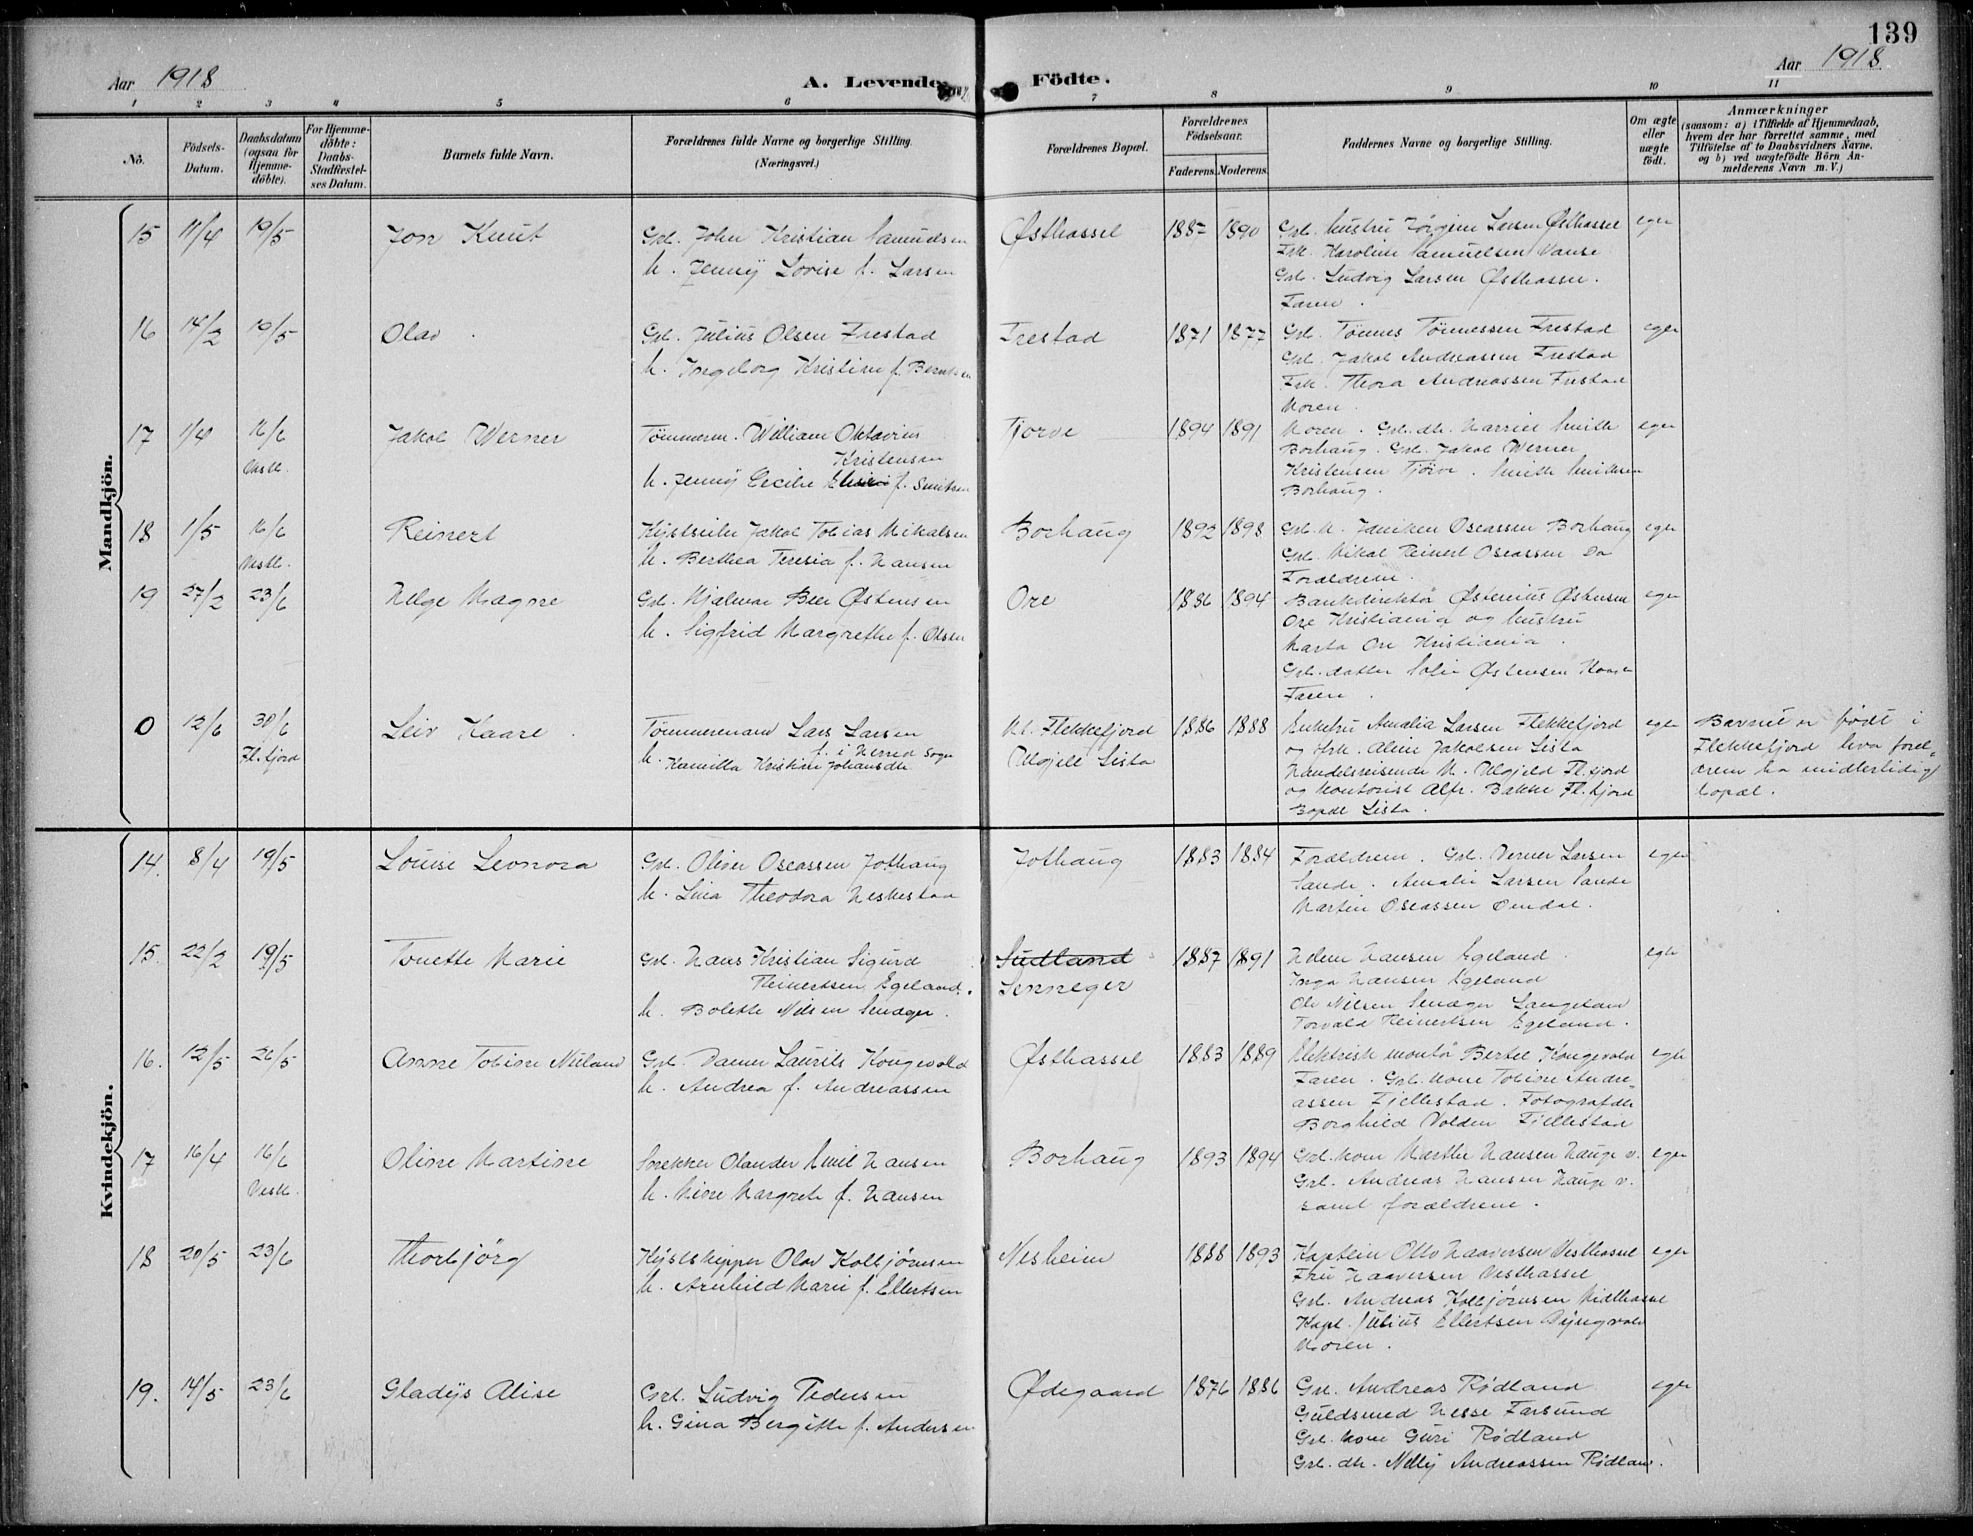 139
Aar 1918
A. Levende Födte.
Aar 1918
1 2 3 4 5 6 7 8 9 10 11
No.
Födsels-Datum.
Daabsdatum (ogsaa for Hjemme-döbte).
For Hjemme-döbte: Daabs-Stadfæstel-ses Datum.
Barnets fulde Navn.
Forældrenes fulde Navne og borgerlige Stilling. (Næringsvei.)
Forældrenes Bopæl.
Forældrenes Födselsaar.
Faderens. Moderens.
Faddernes Navne og borgerlige Stilling.
Om ægte eller uægte födt.
Anmærkninger
(saasom: a) i Tilfælde af Hjemmedaab,
hvem der har forrettet samme, med
Tilföielse af to Daabsvidners Navne,
og b) ved uægtefödte Börn An-
melderens Navn m. V.)
Mandkjön.
15 11/4 19/5 Jon Knut
Grb. John Kristian Samuelsen
h. Jenny Lovise f. Larsen
Østhassel 1887 1890
Grb. hustru Jørgine Larsen Østhassel
Frk. Karoline Samuelsen Vanse
Grb. Ludvig Larsen Østhassel.
Faren.
egte
16 14/2 19/5 Olav
Grb. Julius Olsen Frestad
h. Ingeborg Kristine f. Berntsen
Frestad 1871 1877
Grb. Tønnes Tønnessen Frestad
Grb. Jakob Andreassen Frestad
Frk. Thora Andreassen Frestad
Moren.
egte
17 1/4 16/6 Vestb. Jakob Werner
Tømmerm. William Oktavius
Kristensen
h. Jenny Cecilie f. Smithsen
Tjørve 1894 1891
Moren. Grb. dtr. Harriet Smith
Borhaug. Grb. Jakob Werner
Kristensen Tjørve. Smith Smithsen
Borhaug.
egte
18 1/5 16/6 Vestb. Reinert
Jakob Tobias Mikalsen
h. Berthea Teresia f. Hansen
Borhaug 1892 1898
Grb. k. Janiken Oseassen Borhaug
Grb. Mikal Reinert Oseassen Do
Forældrene.
egte
19 27/2 23/6 Helge Magne
Grb. Hjalmar Beer Østensen
h. Sigfrid Margrethe f. Olsen
Ore 1886 1894
Bankdirektør Østenius Østensen
Ore Kristiania og hustru
Marta Ore Kristiania.
Grb. datter Sofie Østensen
Faren.
egte
0 12/6 30/6 Fl.fjord Leiv Kaare.
Tømmermand Lars Larsen
f. i Herred Sogn
h. Kamilla Kristine Johansdtr
Kl. Flekkefjord
Ulgjell Lista
1886 1888
Enkefru Amalia Larsen Flekkefjord
og Frk. Aline Jakobsen Lista
Handelsreisende M. Ulgjeld Fl.fjord
og kontorist Alfr. Bakke Fl.fjord
Bopæl Lista.
egte
Barnet er født i
Flekkefjord hvor foræl-
drene har midlertidig
bopæl.
Kvindekjön.
14. 8/4 19/5 Louise Leonora
Grb. Oliver Oseassen Jothaug
h. Lina Theodora Heskestad
Jothaug 1883 1884
Forældrene. Grb. Verner Larsen
Sande. Amalie Larsen Sande
Martin Oseassen Omdal.
egte
15. 22/2 19/5 Tonette Marie
Grb. Hans Kristian Sigurd
Reinertsen Egeland.
h. Bolette Nilsen
Sudland
Senneger
1887 1891
Helene Hansen Egeland.
Inga Hansen Egeland
Ole Nilsen Langeland
Torvald Reinertsen Egeland.
egte
16. 12/5 26/5 Anne Tobine Nuland
Grb. Daniel Laurits Kongevold
h. Andrea f. Andreassen
Østhassel 1883 1889
Elektrisk montør Bertel Kongevold
Faren. Grb. kone Tobine Andre-
assen Fjellestad. Fotografdtr
Borghild Volden Fjellestad
egte
17 16/4 16/6 Vestb. Oline Martine
Snekker Olander Emil Hansen
h. Mine Margrete f. Hansen
Borhaug 1893 1894
Grb. kone Marthe Hansen Hauge v.
Grb. Andreas Hansen Hauge v.
samt forældrene.
egte
18 20/5 23/6 Thorbjørg
Kystskipper Olav Kolbjørnsen
h. Arnhild Marie f. Ellertsen
Nesheim 1888 1893
Kaptein Otto Haaversen Vesthassel
Fru Haaversen Vesthassel
Grb. Andreas Kolbjørnsen Midthassel
Kapt. Julius Ellertsen Dyngvold
Moren.
egte
19. 14/5 23/6 Gladys Alise
Grb. Ludvig Pedersen
h. Gina Bergitte f. Andersen
Ødegaard 1876 1886
Grb. Andreas Rødland
Guldsmed Hesse Farsund
Grb. kone Guri Rødland
Grb. dtr. Nelly Andreassen Rødland.
egte